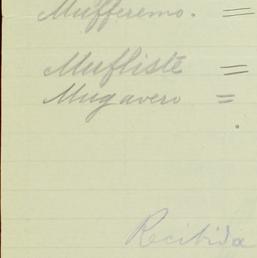 Mufferemo. =
Mufliste =
Mugavero =
Recibida